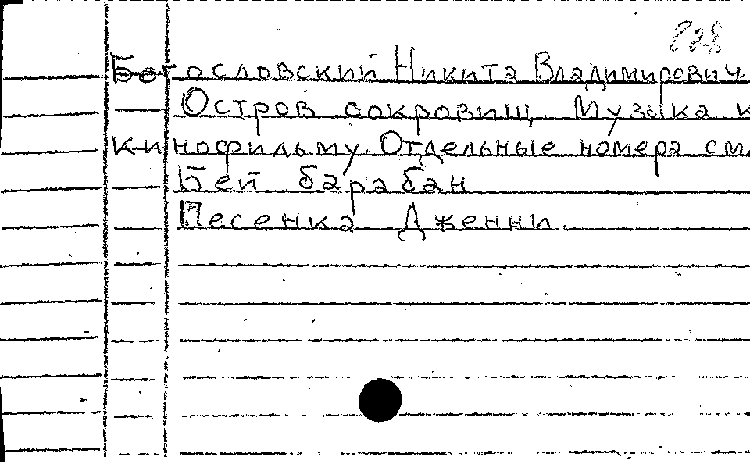 828
Богословский Никита Владимирович.
Остров сокровищ. Музыка к
кинофильму. Отдельные номера см.
Бей барабан
Песенка Дженни.